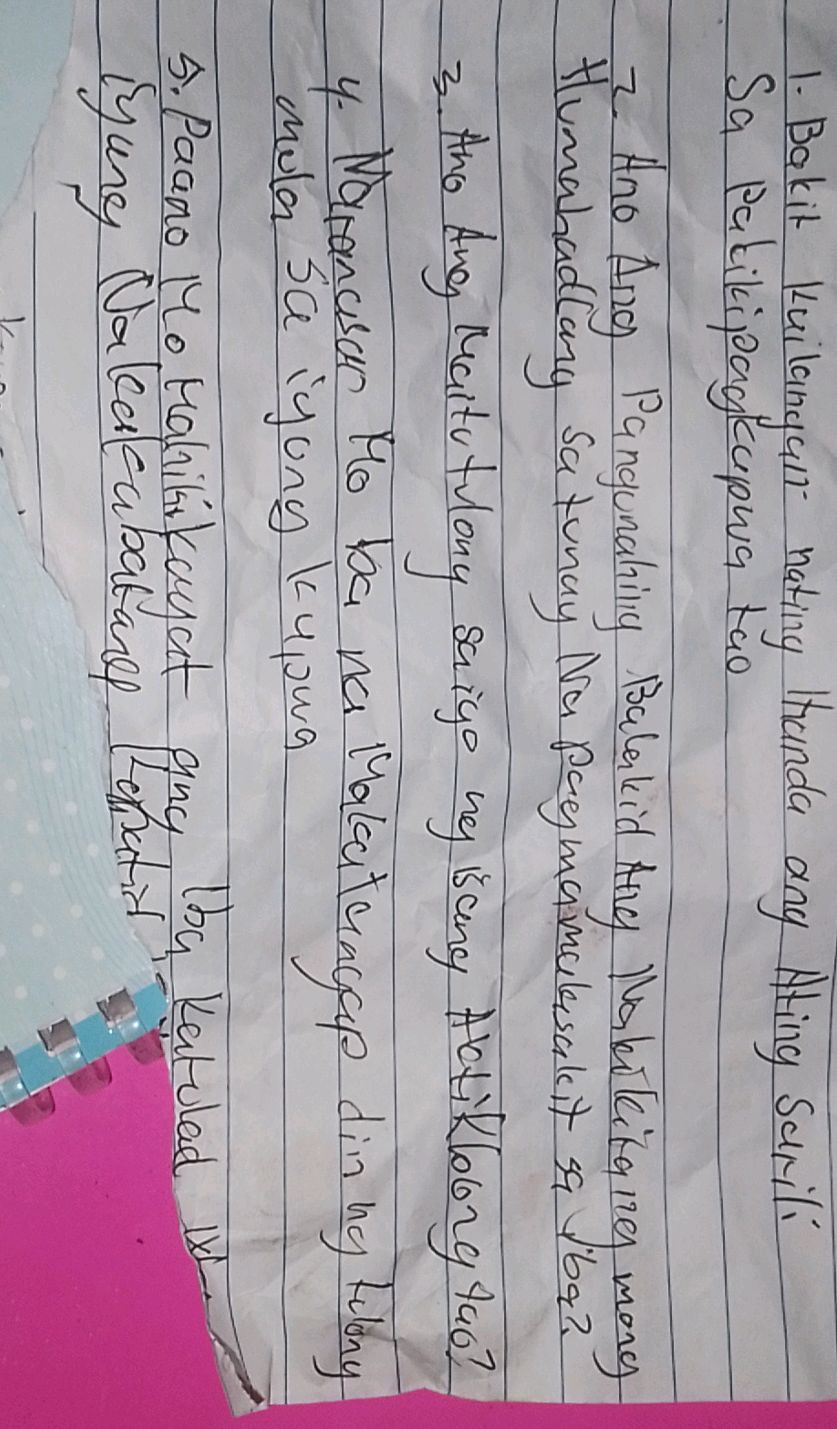 1. Bakit kailangan nating Ihanda ang Ating Sarili
Sa Pakikipagkapwa tao
2. Ano Ang Pangunahing Balakid Ang Nakikitang mong
Humahadlang sa tunay Na pagmamalasakit sa iba?
3. Ano Ang Maitutulong saiyo ng isang tao?
4. Naranasan Mo ba na Makatangap din ng tulong
mula sa iyong kapwa
5. Paano Mo Mahihikayat ang Iba katulad
iyung Nakakabatang kapatid